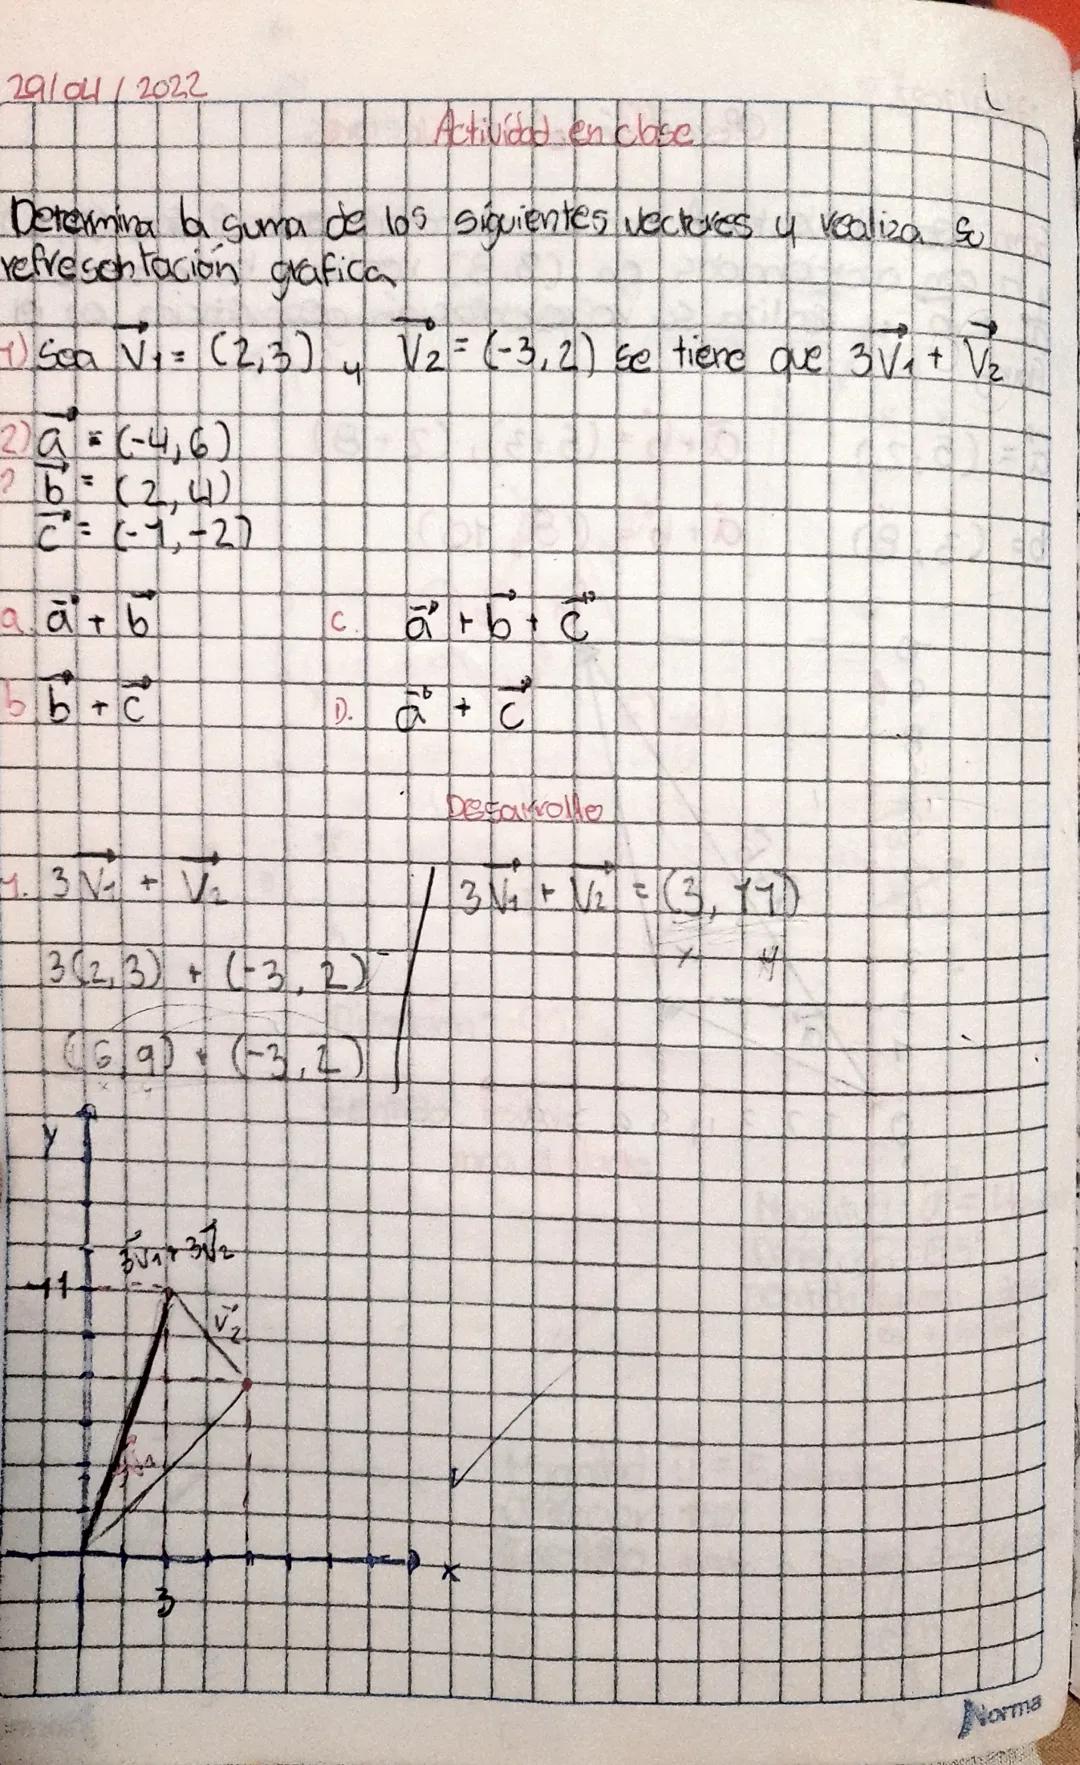 29/04/2022
Actividad en clase
Determina la suma de los siguientes vectores y realiza su
representación grafica
1) Sea V1 = (2,3) y V2 = (-3,2) se tiene que 3V1 + V2
2) a = (-4,6)
b = (2,4)
c = (-1,-2)
a. a + b
C. a + b + c
b b + c
D. a + c
Desarrollo
1. 3V1 + V2
3V1 + V2 = (3, 11)
x y
3(2,3) + (-3, 2)
(6, 9) + (-3, 2)
y
3V1 + 3V2
11
V2
x
3
Norma